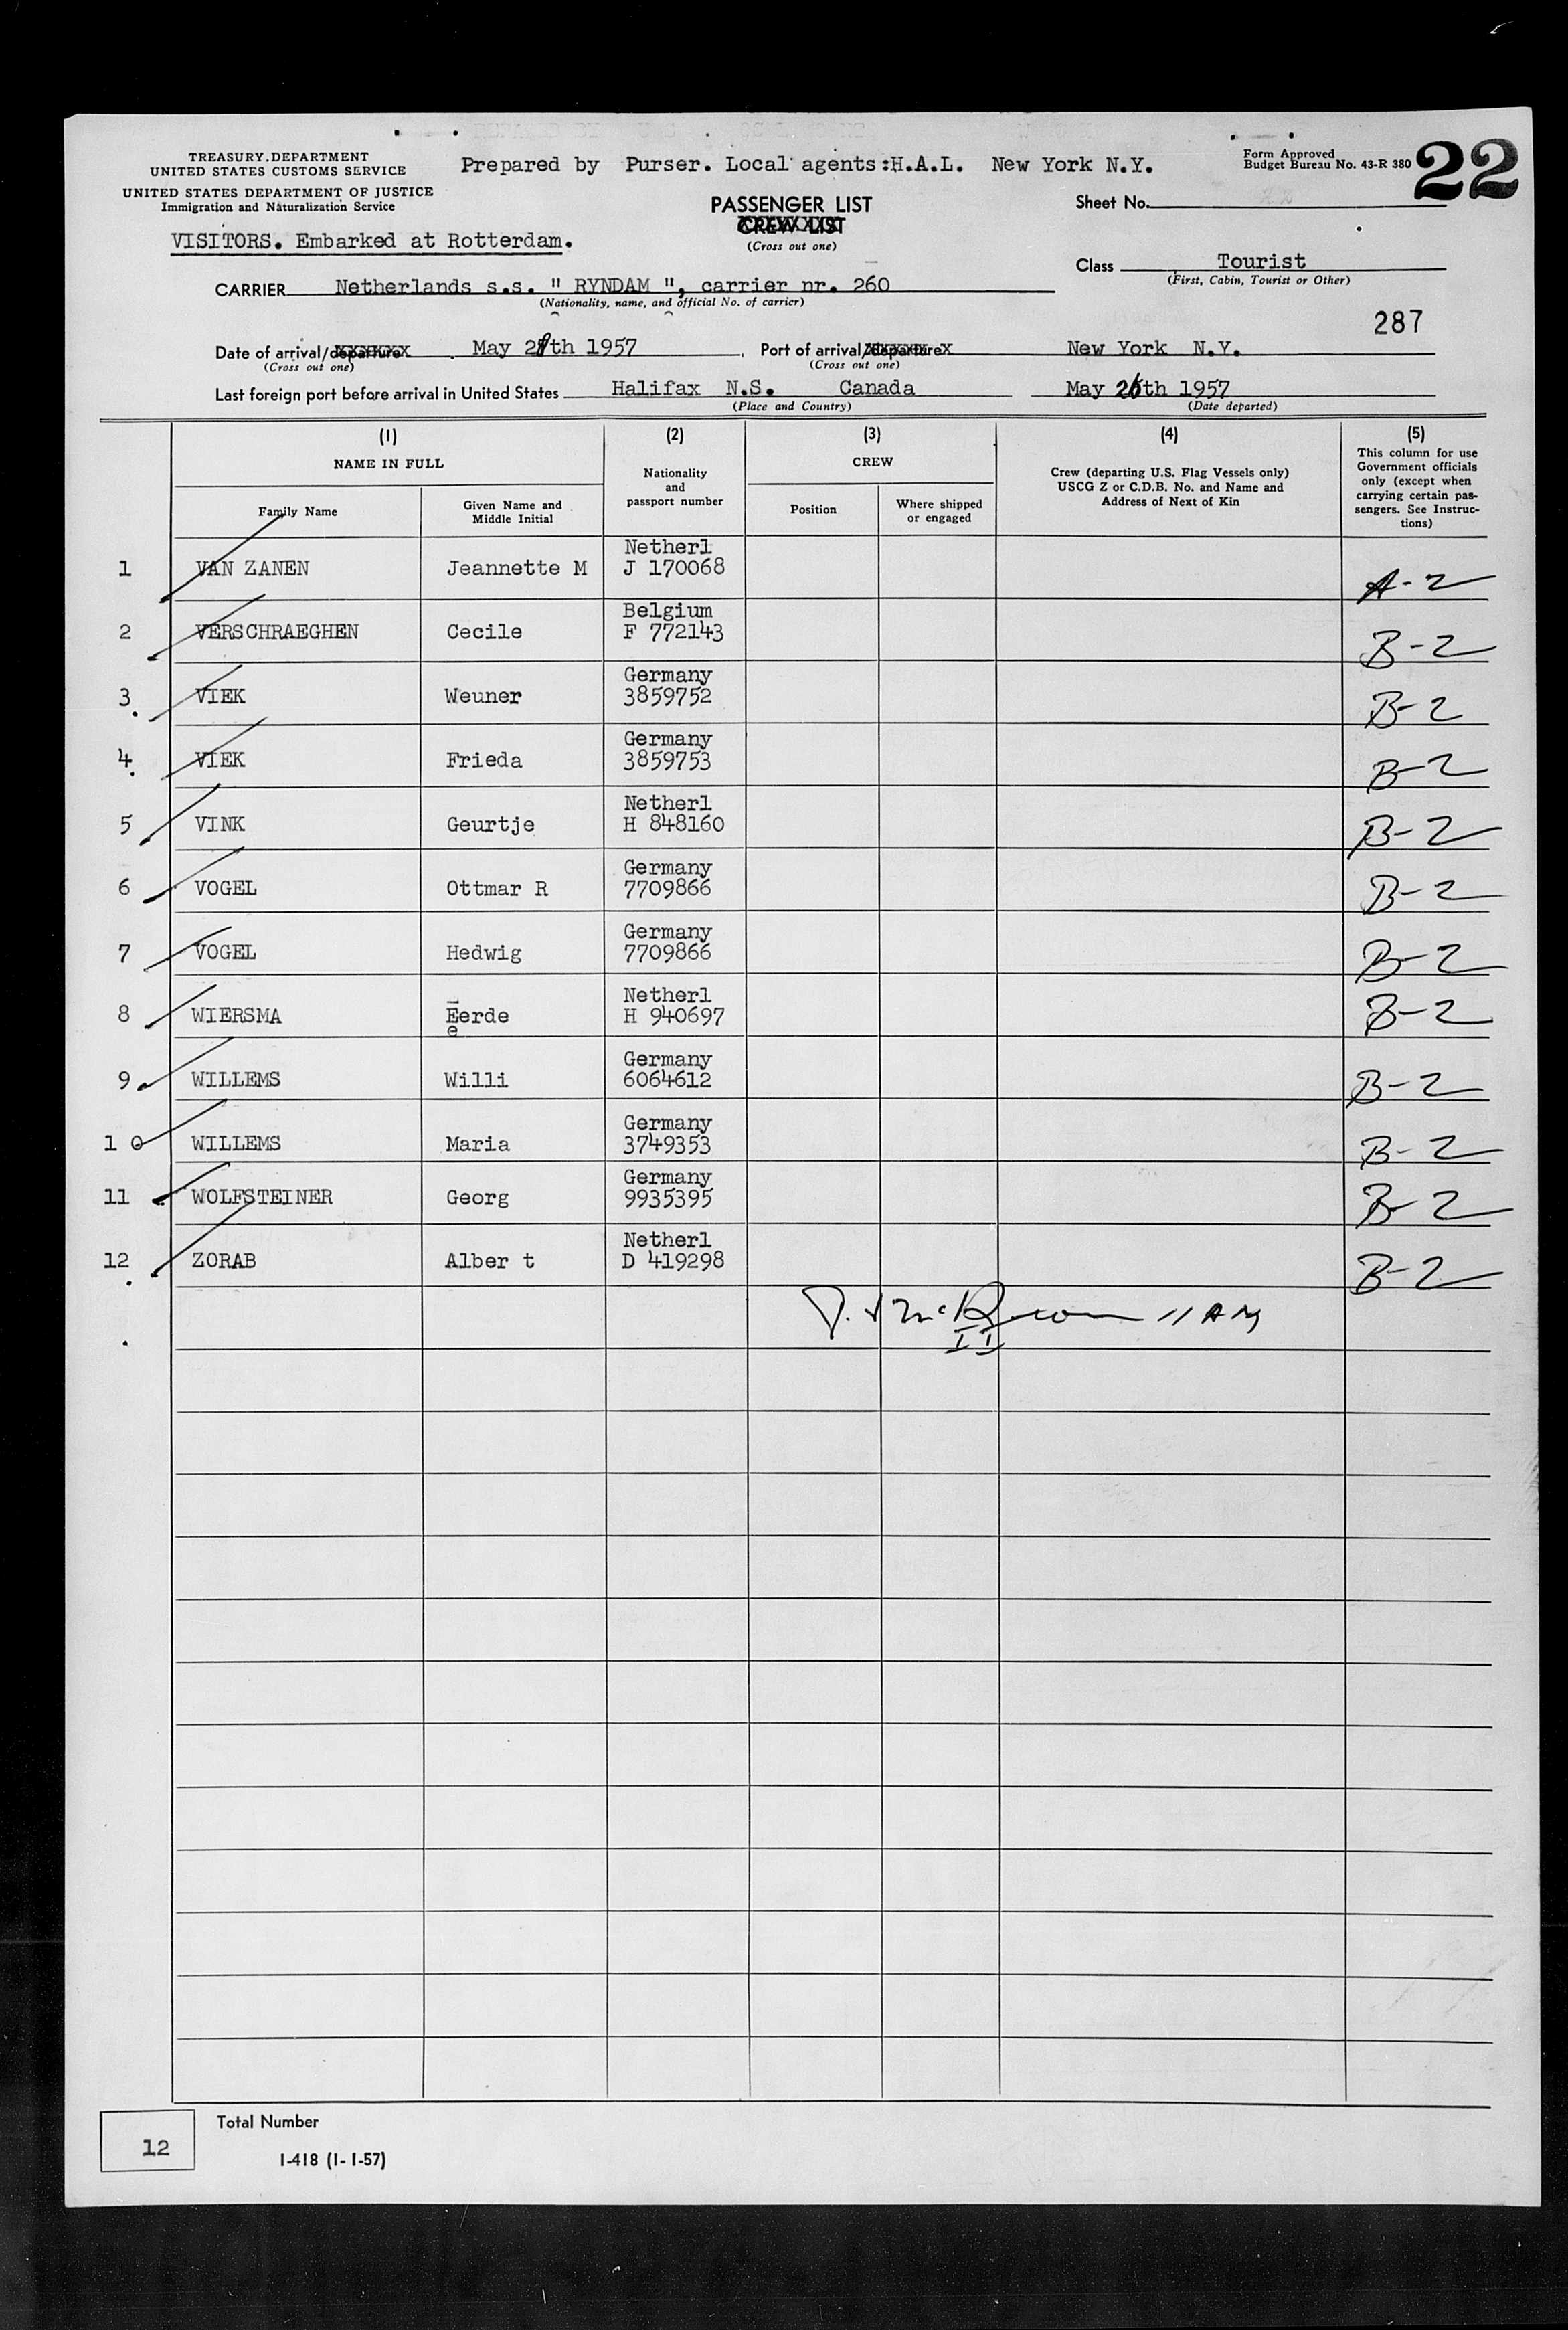 TREASURY DEPARTMENT
UNITED STATES CUSTOMS SERVICE
UNITED STATES DEPARTMENT OF JUSTICE
Immigration and Naturalization Service
Prepared by Purser. Local agents:H.A.L. New York N.Y.
Form Approved
Budget Bureau No. 43-R 380
22
PASSENGER LIST
CREW LIST
(Cross out one)
Sheet No.
VISITORS. Embarked at Rotterdam.
Class Tourist
(First, Cabin, Tourist or Other)
CARRIER Netherlands s.s. " RYNDAM ", carrier nr. 260
(Nationality, name, and official No. of carrier)
287
Date of arrival/departure May 2 th 1957 Port of arrival/departure New York N.Y.
(Cross out one) (Cross out one)
Last foreign port before arrival in United States Halifax N.S. Canada May 26th 1957
(Place and Country) (Date departed)
(1) (2) (3) (4) (5)
NAME IN FULL
Family Name
Given Name and
Middle Initial
Nationality
and
passport number
CREW
Position
Where shipped
or engaged
Crew (departing U.S. Flag Vessels only)
USCG Z or C.D.B. No. and Name and
Address of Next of Kin
This column for use
Government officials
only (except when
carrying certain pas-
sengers. See Instruc-
tions)
Netherl
1 VAN ZANEN Jeannette M J 170068 A-2
Belgium
2 VERSCHRAEGHEN Cecile F 772143 B-2
Germany
3 VIEK Weuner 3859752 B-2
Germany
4 VIEK Frieda 3859753 B-2
Netherl
5 VINK Geurtje H 848160 B-2
Germany
6 VOGEL Ottmar R 7709866 B-2
Germany
7 VOGEL Hedwig 7709866 B-2
Netherl
8 WIERSMA Eerde H 940697 B-2
e
Germany
9 WILLEMS Willi 6064612 B-2
Germany
1 0 WILLEMS Maria 3749353 B-2
Germany
11 WOLFSTEINER Georg 9935395 B-2
Netherl
12 ZORAB Alber t D 419298 B-2
11 AM
II
12
Total Number
I-418 (1-1-57)